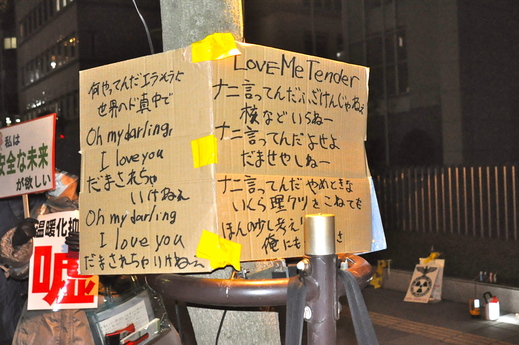 何やってんだエラそうに
世界ベド真中で
Oh my darling,
I love you
だまされちゃ
いけねぇ
Oh my darling
I love you
だまされちゃいけねぇ
LOVE Me Tender
ナニ言ってんだふざけんじゃねぇ
核などいらねー
ナニ言ってんだよせよ
だませやしねー
ナニ言ってんだやめときな
いくら理クツをこねても
ほんの少し考え
俺にも
私は
安全な未来
が欲しい
温暖化
嘘